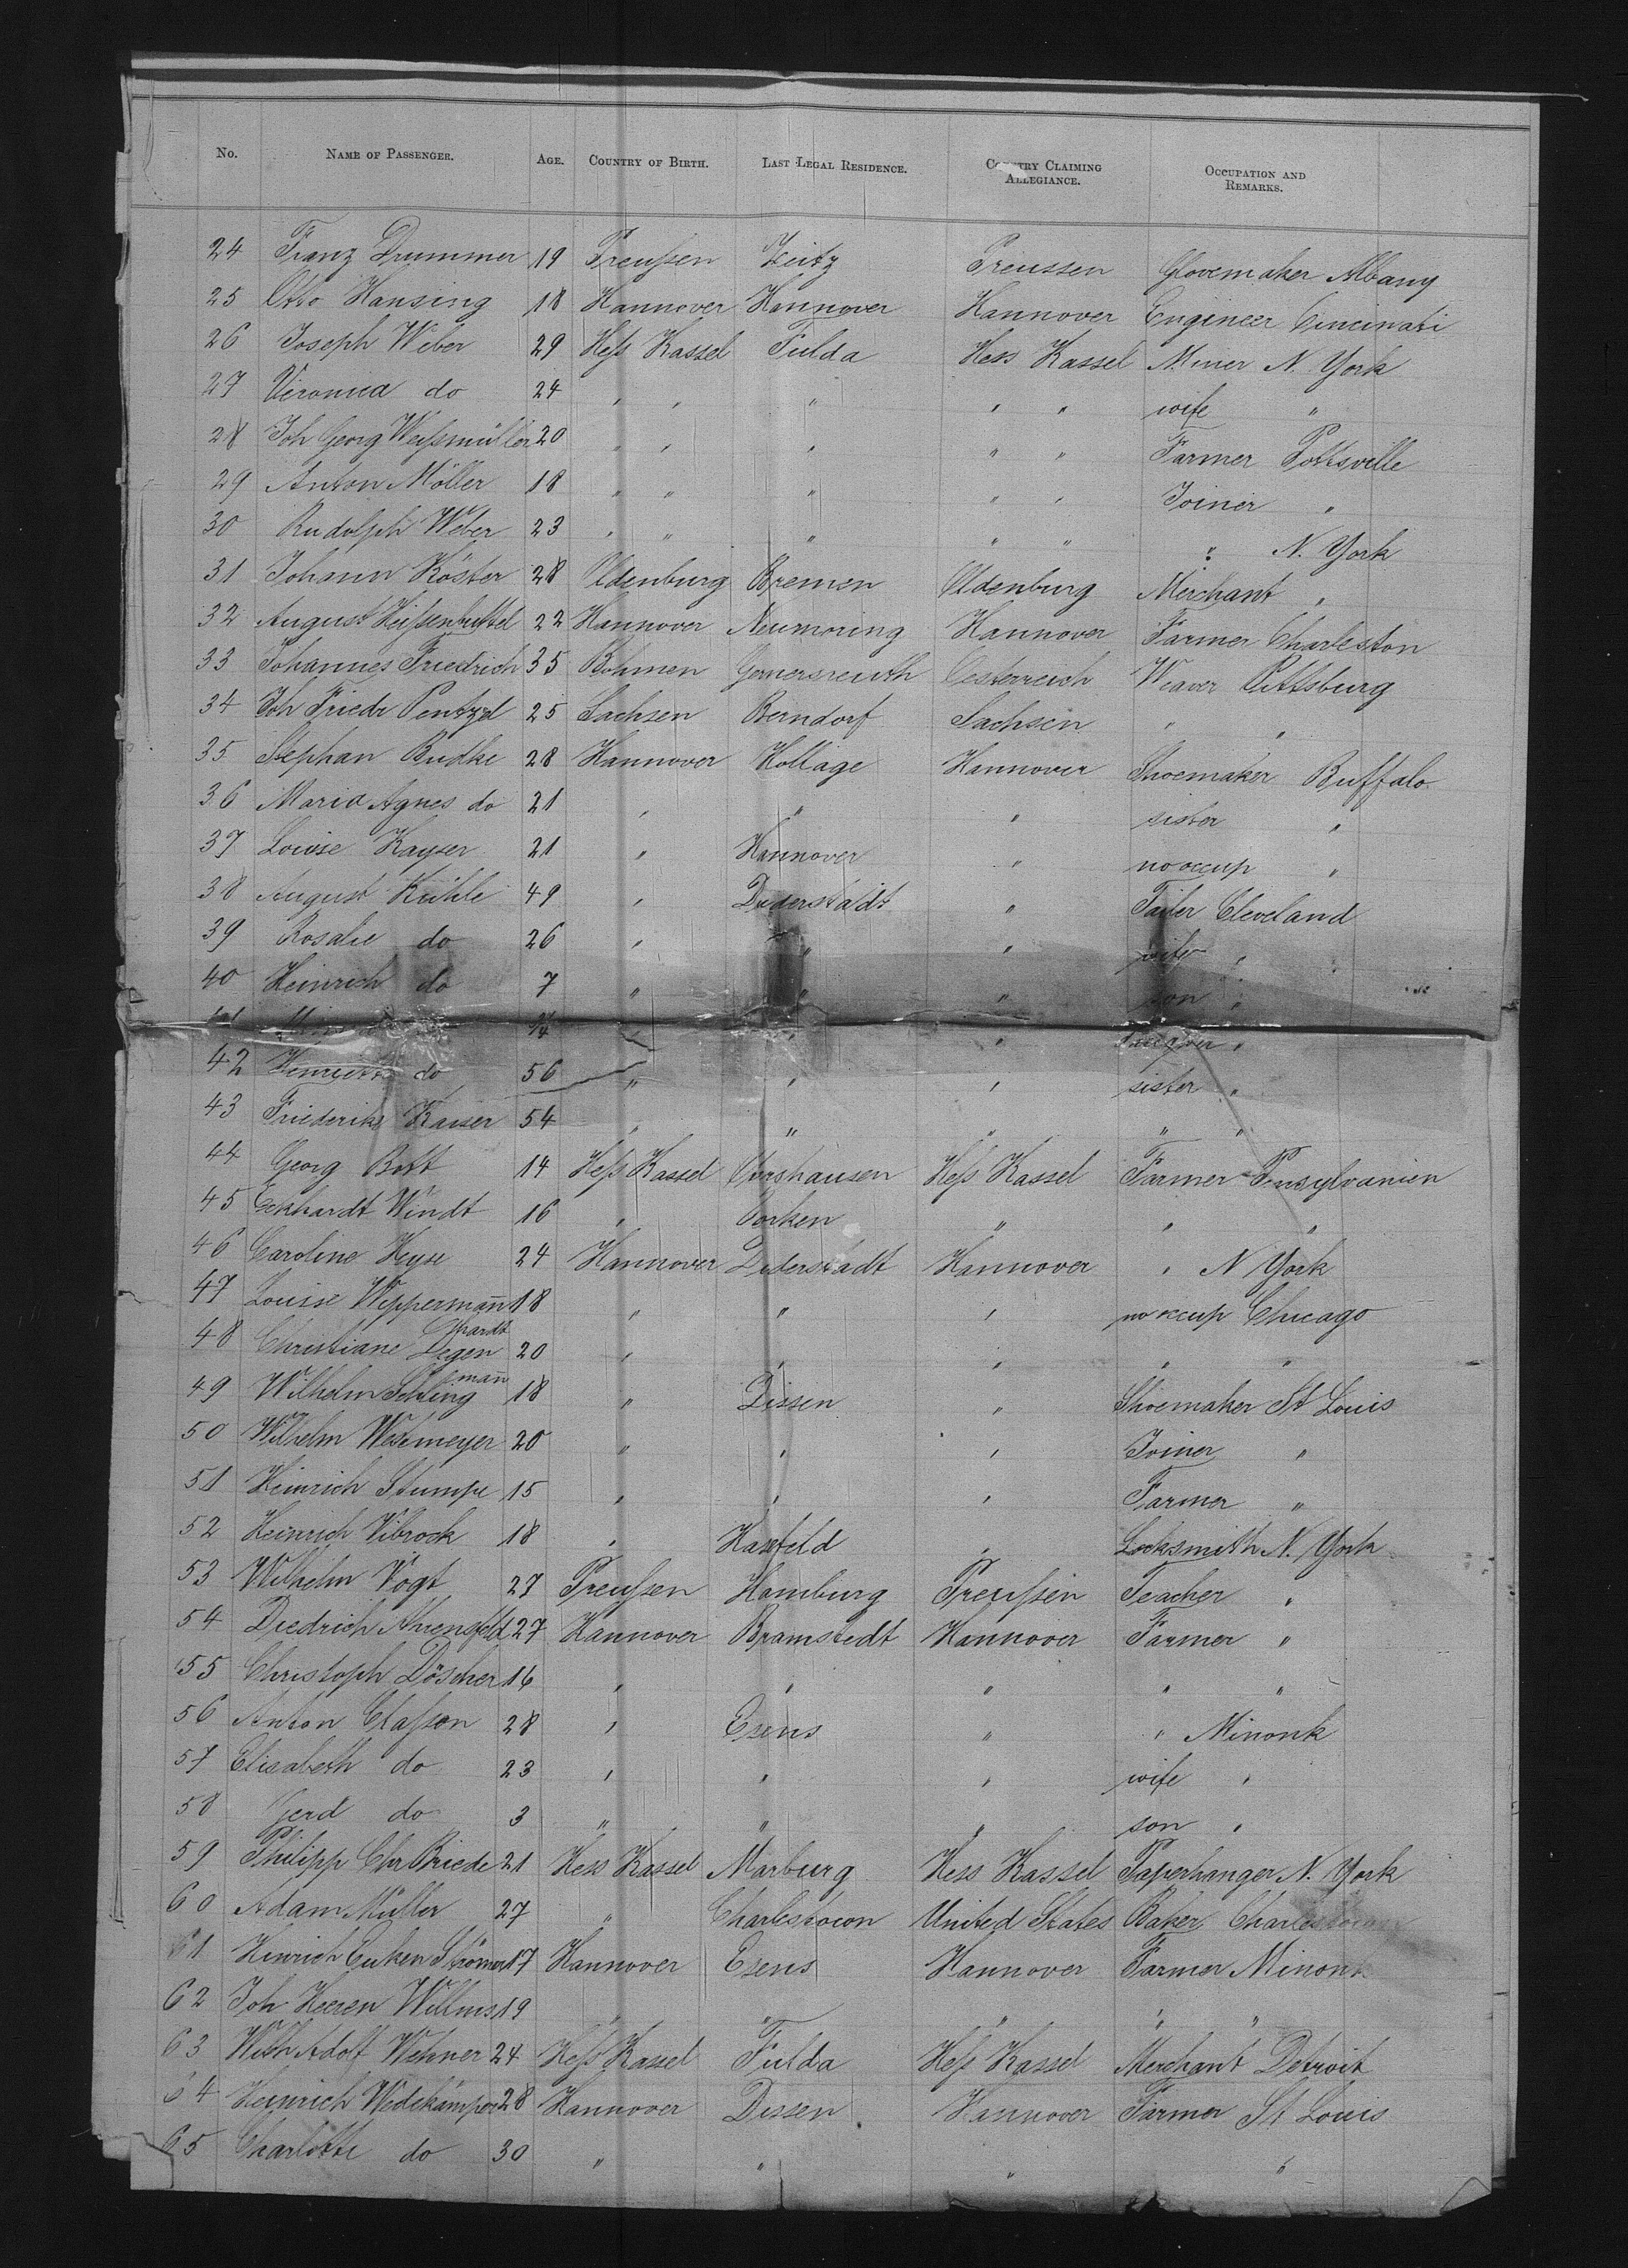 No. NAME OF PASSENGER. AGE. COUNTRY OF BIRTH. LAST LEGAL RESIDENCE. COUNTRY CLAIMING ALLEGIANCE. OCCUPATION AND REMARKS.
24 Franz Drummer 19 Preußen Zeitz Preussen Glovemaker Albany
25 Otto Hansing 18 Hannover Hannover Hannover Engineer Cincinati
26 Joseph Weber 29 Heß Kassel Fulda Hess Kassel Miner N. York
27 Veronica do 24 " " " " " wife "
28 Joh Georg Weißmüller 20 " " " " " Farmer Pottsville
29 Anton Möller 18 " " " " " Joiner "
30 Rudolph Weber 23 " " " " " " N. York
31 Johann Köster 28 Oldenburg Bremen Oldenburg Merchant "
32 August Heißenbuttel 22 Hannover Hannover Farmer Charleston
33 Johannes Friedrich 35 Böhmen Oesterreich Weaver Pittsburg
34 Joh Friedr Pentzel 25 Sachsen Berndorf Sachsen " "
35 Stephan Budke 28 Hannover Hollage Hannover Shoemaker Buffalo
36 Maria Agnes do 21 " " " sister "
37 Louise Kayser 21 " Hannover " no occup "
38 August Kühle 49 " Duderstadt " Tailer Cleveland
39 Rosalie do 26 " " " wife "
40 Heinrich do 7 " " " son "
41 " " "
42 Henriette do 56 " " " sister "
43 Friederike Kaiser 54 " " " " "
44 Georg Bott 14 Heß Kassel Heß Kassel Farmer Pensylvanien
45 Eckhardt Windt 16 " " " "
46 Caroline Heyse 24 Hannover Duderstadt Hannover " N York
47 Louise Wippermañ 18 " " " no occup Chicago
48 Christiane Degenhardt 20 " " " " "
49 Wilhelm Schlingmañ 18 " Dissen " Shoemaker St Louis
50 Wilhelm Westmeyer 20 " " " Joiner "
51 Heinrich Stumpe 15 " " " Farmer "
52 Heinrich Vibrock 18 " " Locksmith N. York
53 Wilhelm Vogt 27 Preußen Hamburg Preußen Teacher "
54 Diedrich Ahrensfeld 27 Hannover Bramstedt Hannover Farmer "
55 Christoph Döscher 16 " " " " "
56 Anton Claßen 28 " Esens " " Minonk
57 Elisabeth do 23 " " " wife "
58 Gerd do 3 " " " son "
59 Philipp Chr Briede 21 Hess Kassel Marburg Hess Kassel Paperhanger N. York
60 Adam Müller 27 " Charlestown United States Baker Charlestown
61 Hinrich 17 Hannover Esens Hannover Farmer Minonk
62 Joh Heeren Willms 19 " " " " "
63 Wilh Adolf Wehner 24 Heß Kassel Fulda Heß Kassel Merchant Detroit
64 Heinrich Wedekämper 28 Hannover Dissen Hannover Farmer St Louis
65 Charlotte do 30 " " " "